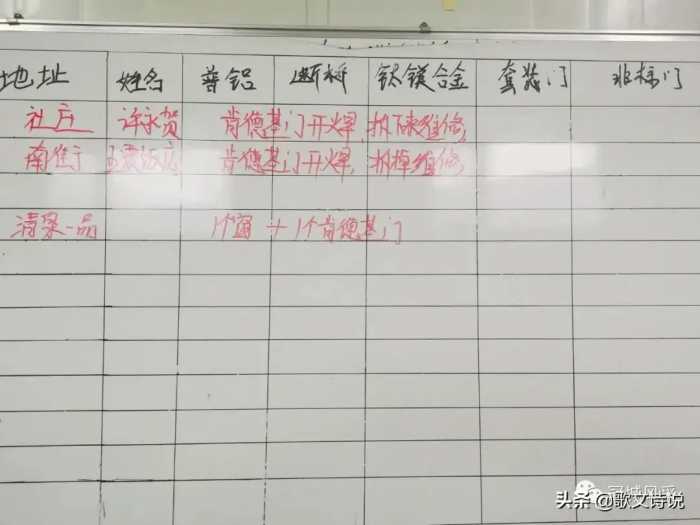 地址 姓名 普铝 断桥 钛镁合金 套装门 非标门
社庄 许永贺 肯德基门开焊,拆下来维修,
肯德基门开焊,拆掉维修,
清泉一品 1个窗+1个肯德基门
冠城风采
头条@歌文诗说